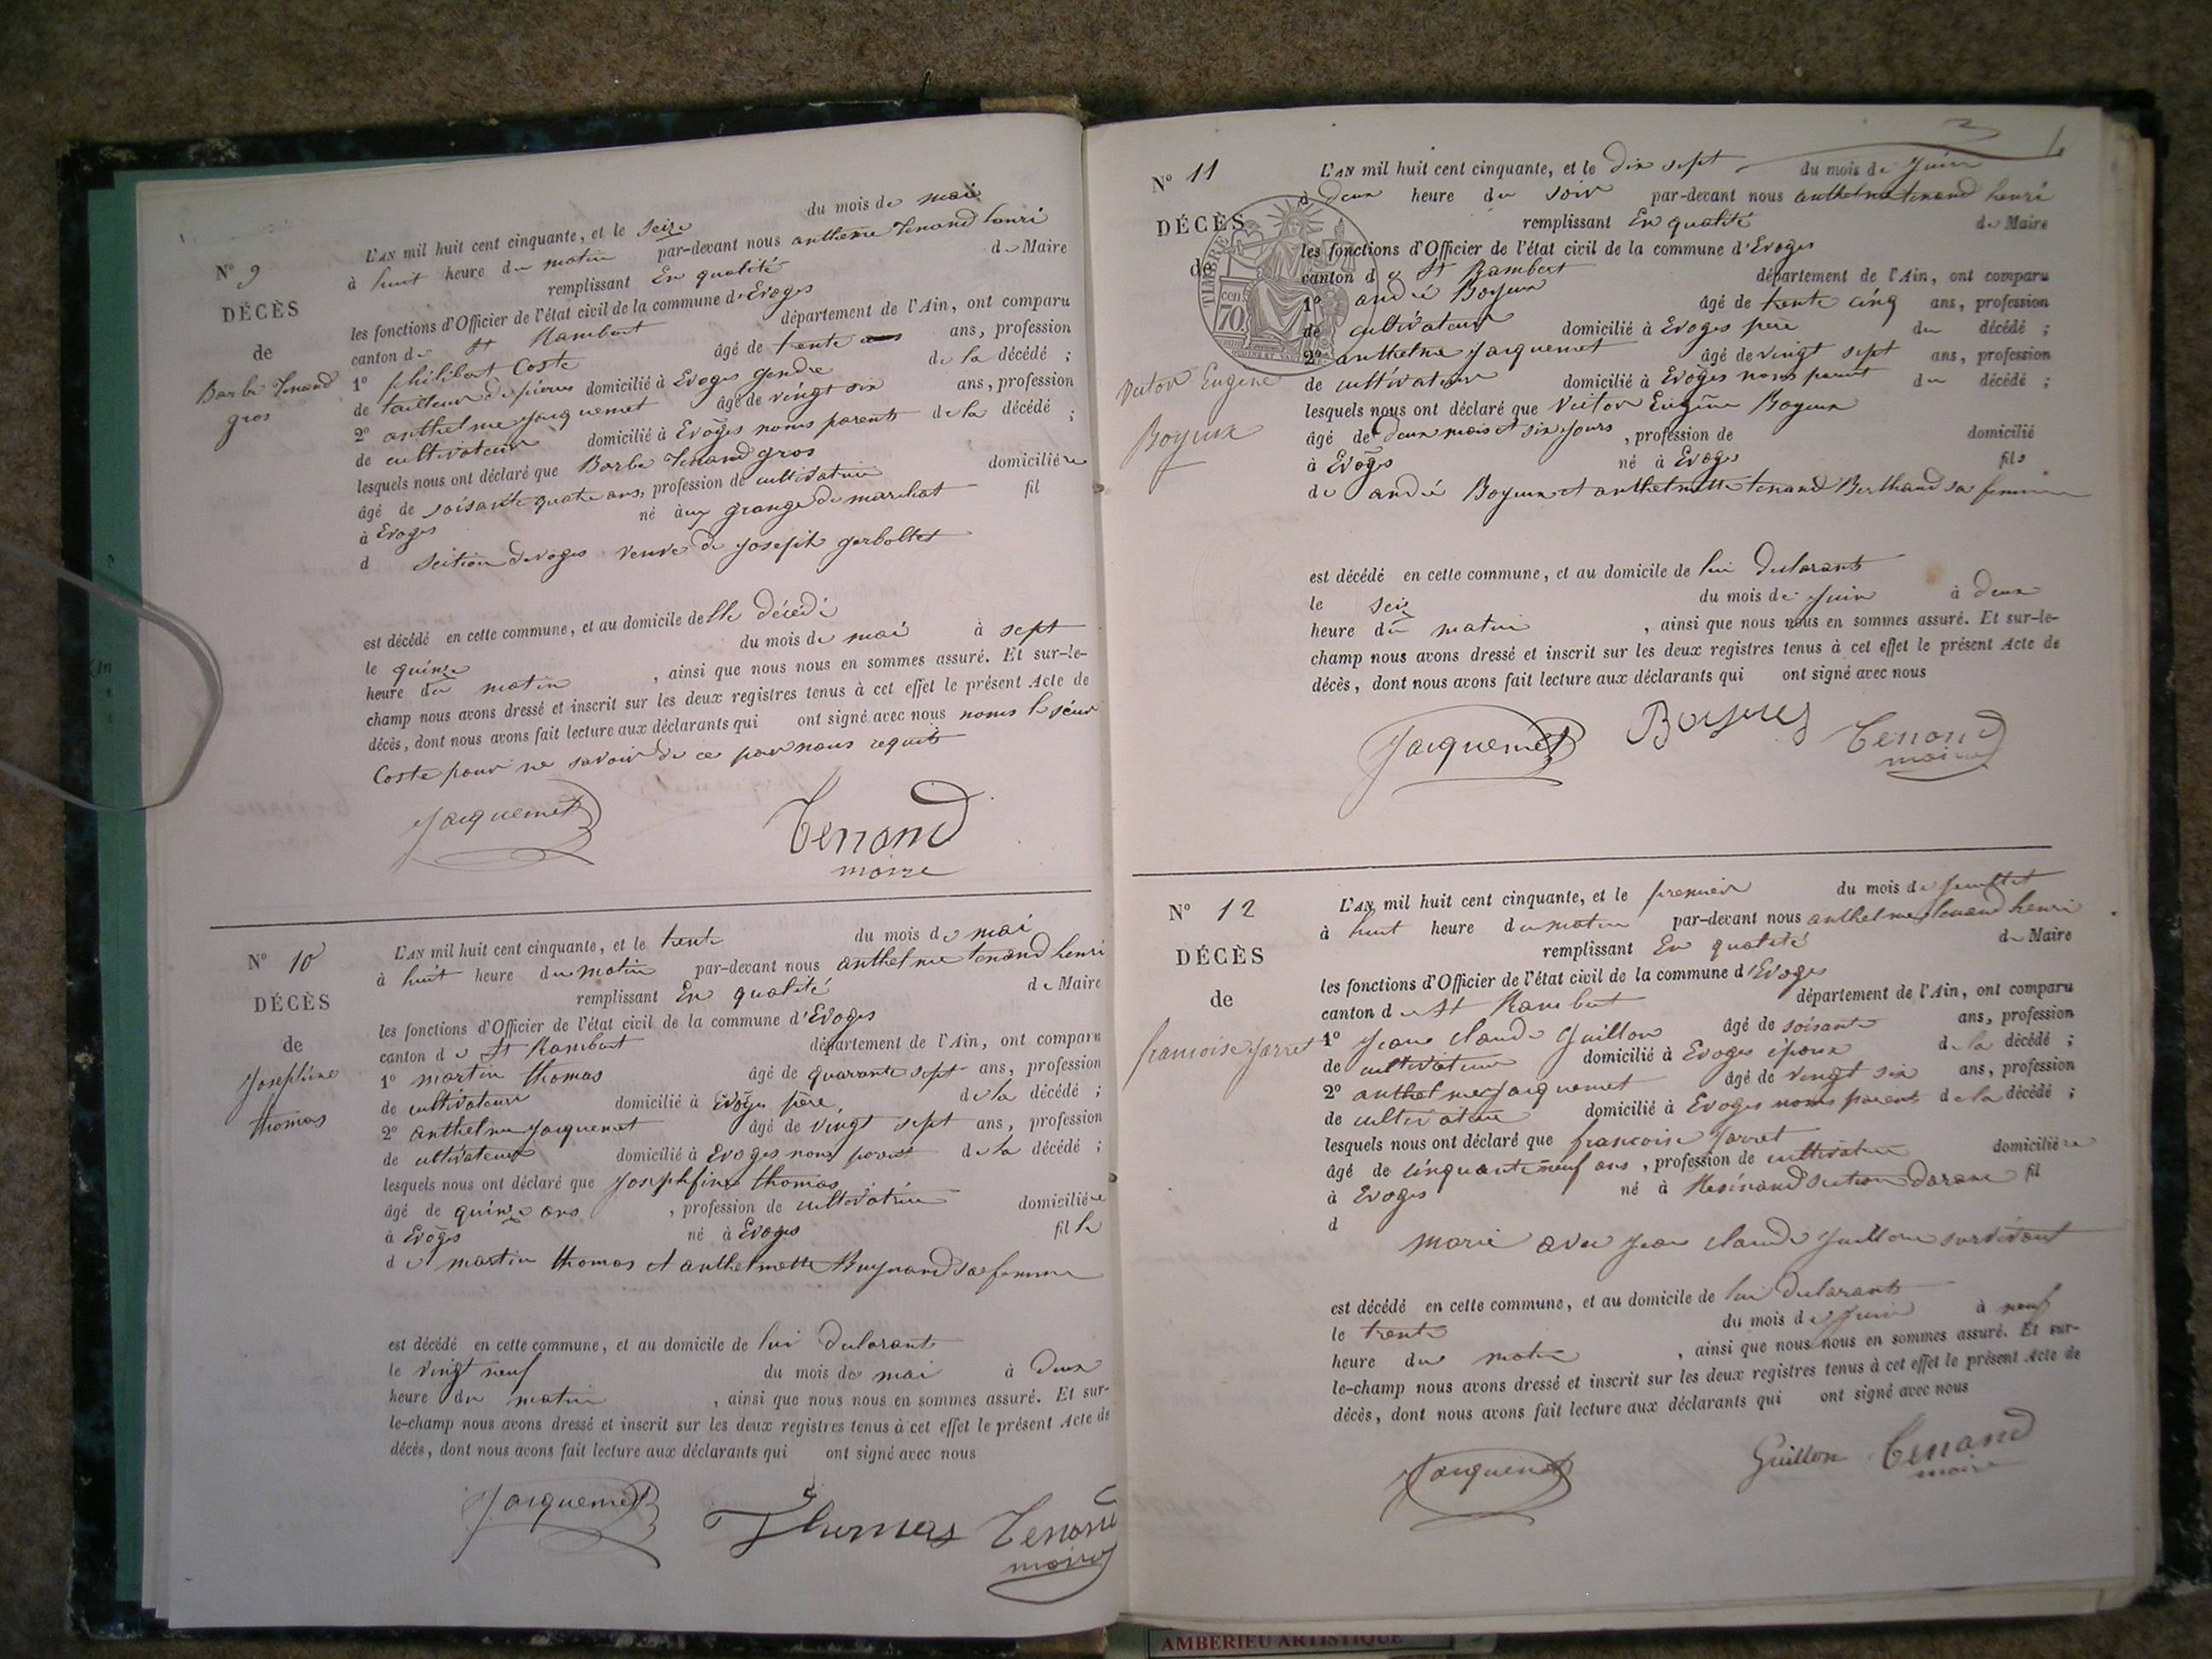 N° 9
DÉCÈS
de
Barbe Tenand
gros
L'AN mil huit cent cinquante, et le seize du mois de mai
à huit heure du matin par-devant nous anthelme tenand henri
remplissant En qualité de Maire
les fonctions d'Officier de l'état civil de la commune d'Evoges
canton de St Rambert département de l'Ain, ont comparu
1° philibert Coste âgé de trente ans ans, profession
de tailleur de pierres domicilié à Evoges gendre de la décédé ;
2° anthelme jacquemet âgé de vingt six ans, profession
de cultivateur domicilié à Evoges noms parents de la décédé ;
lesquels nous ont déclaré que Barbe Tenand gros
âgé de soisante quatre ans, profession de cultivatrice domiciliée
à Evoges né aux grange de marchat fil
d section devoges veuve de joseph gerboltet
est décédé en cette commune, et au domicile de lle décédé
le quinze du mois de mai à sept
heure du matin , ainsi que nous nous en sommes assuré. Et sur-le-
champ nous avons dressé et inscrit sur les deux registres tenus à cet effet le présent Acte de
décès, dont nous avons fait lecture aux déclarants qui ont signé avec nous noms le sieur
Coste pour ne savoir de ce par nous requit
Jacquemet Tenand
maire
N° 10
DÉCÈS
de
Josephine
thomas
L'AN mil huit cent cinquante, et le trente du mois de mai
à huit heure du matin par-devant nous anthelme tenand henri
remplissant En qualité de Maire
les fonctions d'Officier de l'état civil de la commune d'Evoges
canton de St Rambert département de l'Ain, ont comparu
1° martin thomas âgé de quarante sept ans, profession
de cultivateur domicilié à Evoges père de la décédé ;
2° anthelme jacquemet âgé de vingt sept ans, profession
de cultivateur domicilié à Evoges noms parent de la décédé ;
lesquels nous ont déclaré que Josephine thomas
âgé de quinze ans , profession de cultivatrice domiciliée
à Evoges né à Evoges fille
de martin thomas et anthelmette Buynand sa femme
est décédé en cette commune, et au domicile de lui declarant
le vingt neuf du mois de mai à deux
heure du matin , ainsi que nous nous en sommes assuré. Et sur-
le-champ nous avons dressé et inscrit sur les deux registres tenus à cet effet le présent Acte de
décès, dont nous avons fait lecture aux déclarants qui ont signé avec nous
Jacquemet Thomas Tenand
maire
3
N° 11
DÉCÈS
de
Victor Eugène
Boyeux
TIMBRE
cen.
70
L'AN mil huit cent cinquante, et le dix sept du mois de juin
à deux heure du soir par-devant nous anthelme tenand henri
remplissant En qualité de Maire
les fonctions d'Officier de l'état civil de la commune d'Evoges
canton de St Rambert département de l'Ain, ont comparu
1° andré Boyeux âgé de trente cinq ans, profession
de cultivateur domicilié à Evoges père du décédé ;
2° anthelme jacquemet âgé de vingt sept ans, profession
de cultivateur domicilié à Evoges noms parent du décédé ;
lesquels nous ont déclaré que Victor Eugène Boyeux
âgé de deux mois et six jours , profession de domicilié
à Evoges né à Evoges fils
de andré Boyeux et anthelmette tenand Berthaud sa femme
est décédé en cette commune, et au domicile de lui declarant
le seize du mois de juin à deux
heure du matin , ainsi que nous nous en sommes assuré. Et sur-le-
champ nous avons dressé et inscrit sur les deux registres tenus à cet effet le présent Acte de
décès, dont nous avons fait lecture aux déclarants qui ont signé avec nous
Jacquemet Boyeux Tenand
maire
N° 12
DÉCÈS
de
francoise Jarret
L'AN mil huit cent cinquante, et le premier du mois de juillet
à huit heure du matin par-devant nous anthelme tenand henri
remplissant En qualité de Maire
les fonctions d'Officier de l'état civil de la commune d'Evoges
canton de St Rambert département de l'Ain, ont comparu
1° Jean Claude Guillon âgé de soisante ans, profession
de cultivateur domicilié à Evoges époux de la décédé ;
2° anthelme jacquemet âgé de vingt six ans, profession
de cultivateur domicilié à Evoges noms parent de la décédé ;
lesquels nous ont déclaré que francoise Jarret
âgé de cinquante neuf ans , profession de cultivatrice domiciliée
à Evoges né à Resinand section darane fil
d
marié avec jean claude guillon survivant
est décédé en cette commune, et au domicile de lui declarant
le trente du mois de juin à neuf
heure du matin , ainsi que nous nous en sommes assuré. Et sur-
le-champ nous avons dressé et inscrit sur les deux registres tenus à cet effet le présent Acte de
décès, dont nous avons fait lecture aux déclarants qui ont signé avec nous
Jacquemet Guillon Tenand
maire
AMBERIEU ARTISTIQUE